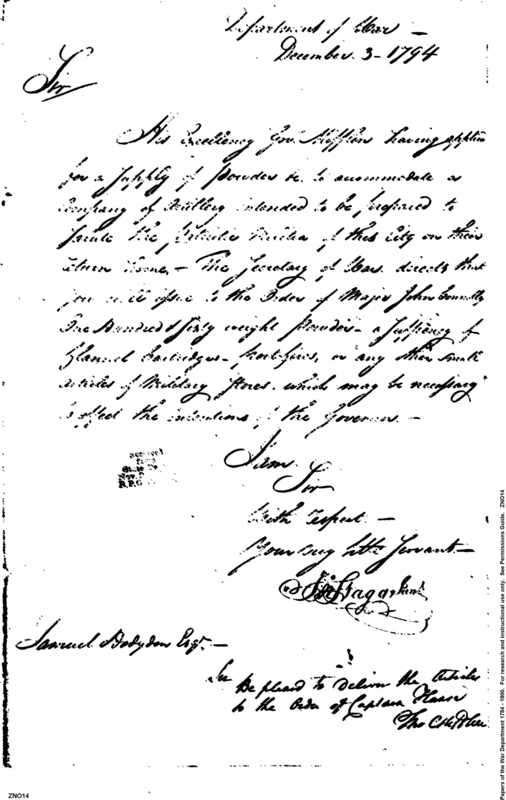 Department of War —
December 3 - 1794
Sir
His Excellency Gov. Mifflin having applied
for a Supply of Powder &c. to accommodate a
Company of Artillery intended to be prepared to
Salute the Militia of this City on their
return home, — The Secretary of War directs that
you will issue to the Order of Major John Connelly
One Hundred & Sixty weight Powder - a sufficiency of
flannel Cartridges - portfires, or any other small
Articles of Military Stores, which may be necessary
to effect the intentions of the Governor. —
I am
Sir
With respect —
Your Very hble Servant —
Jn Stagg
Samuel Hodgdon Esqr. —
Sir
Be pleasd to Deliver the Articles
to the Order of Captain
ZNO14
Papers of the War Department 1784 - 1800. For research and instructional use only. See Permissions Guide. ZNO14